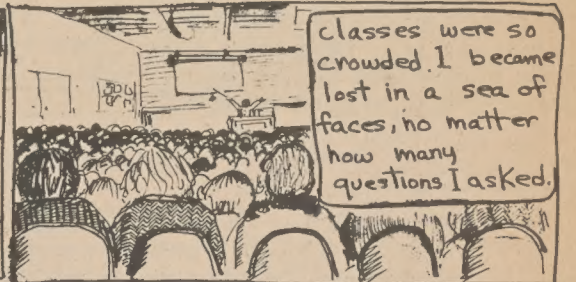 classes were so
crowded. I became
lost in a sea of
faces, no matter
how many
questions I asked.